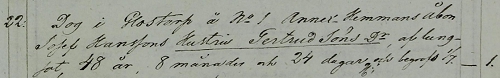 22. Dog i Glostorp å No 1 Annex Hemmans Åbon
Josef Hanssons Hustru Gertrud Jöns Dr, af lung-
sot, 48 år, 8 månader och 24 dagar, och begrofs 17. — 1.